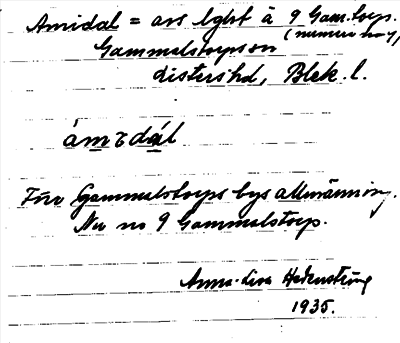 Amidal = avs lght å 9 Gam.torp.
(numera hmn)
Gammalstorps sn
Listers hd, Blek. l.
ámɩdál
Före Gammalstorps bys allmänning.
Nu no 9 Gammalstorp.
Anna-Lisa Hedenström
1935.